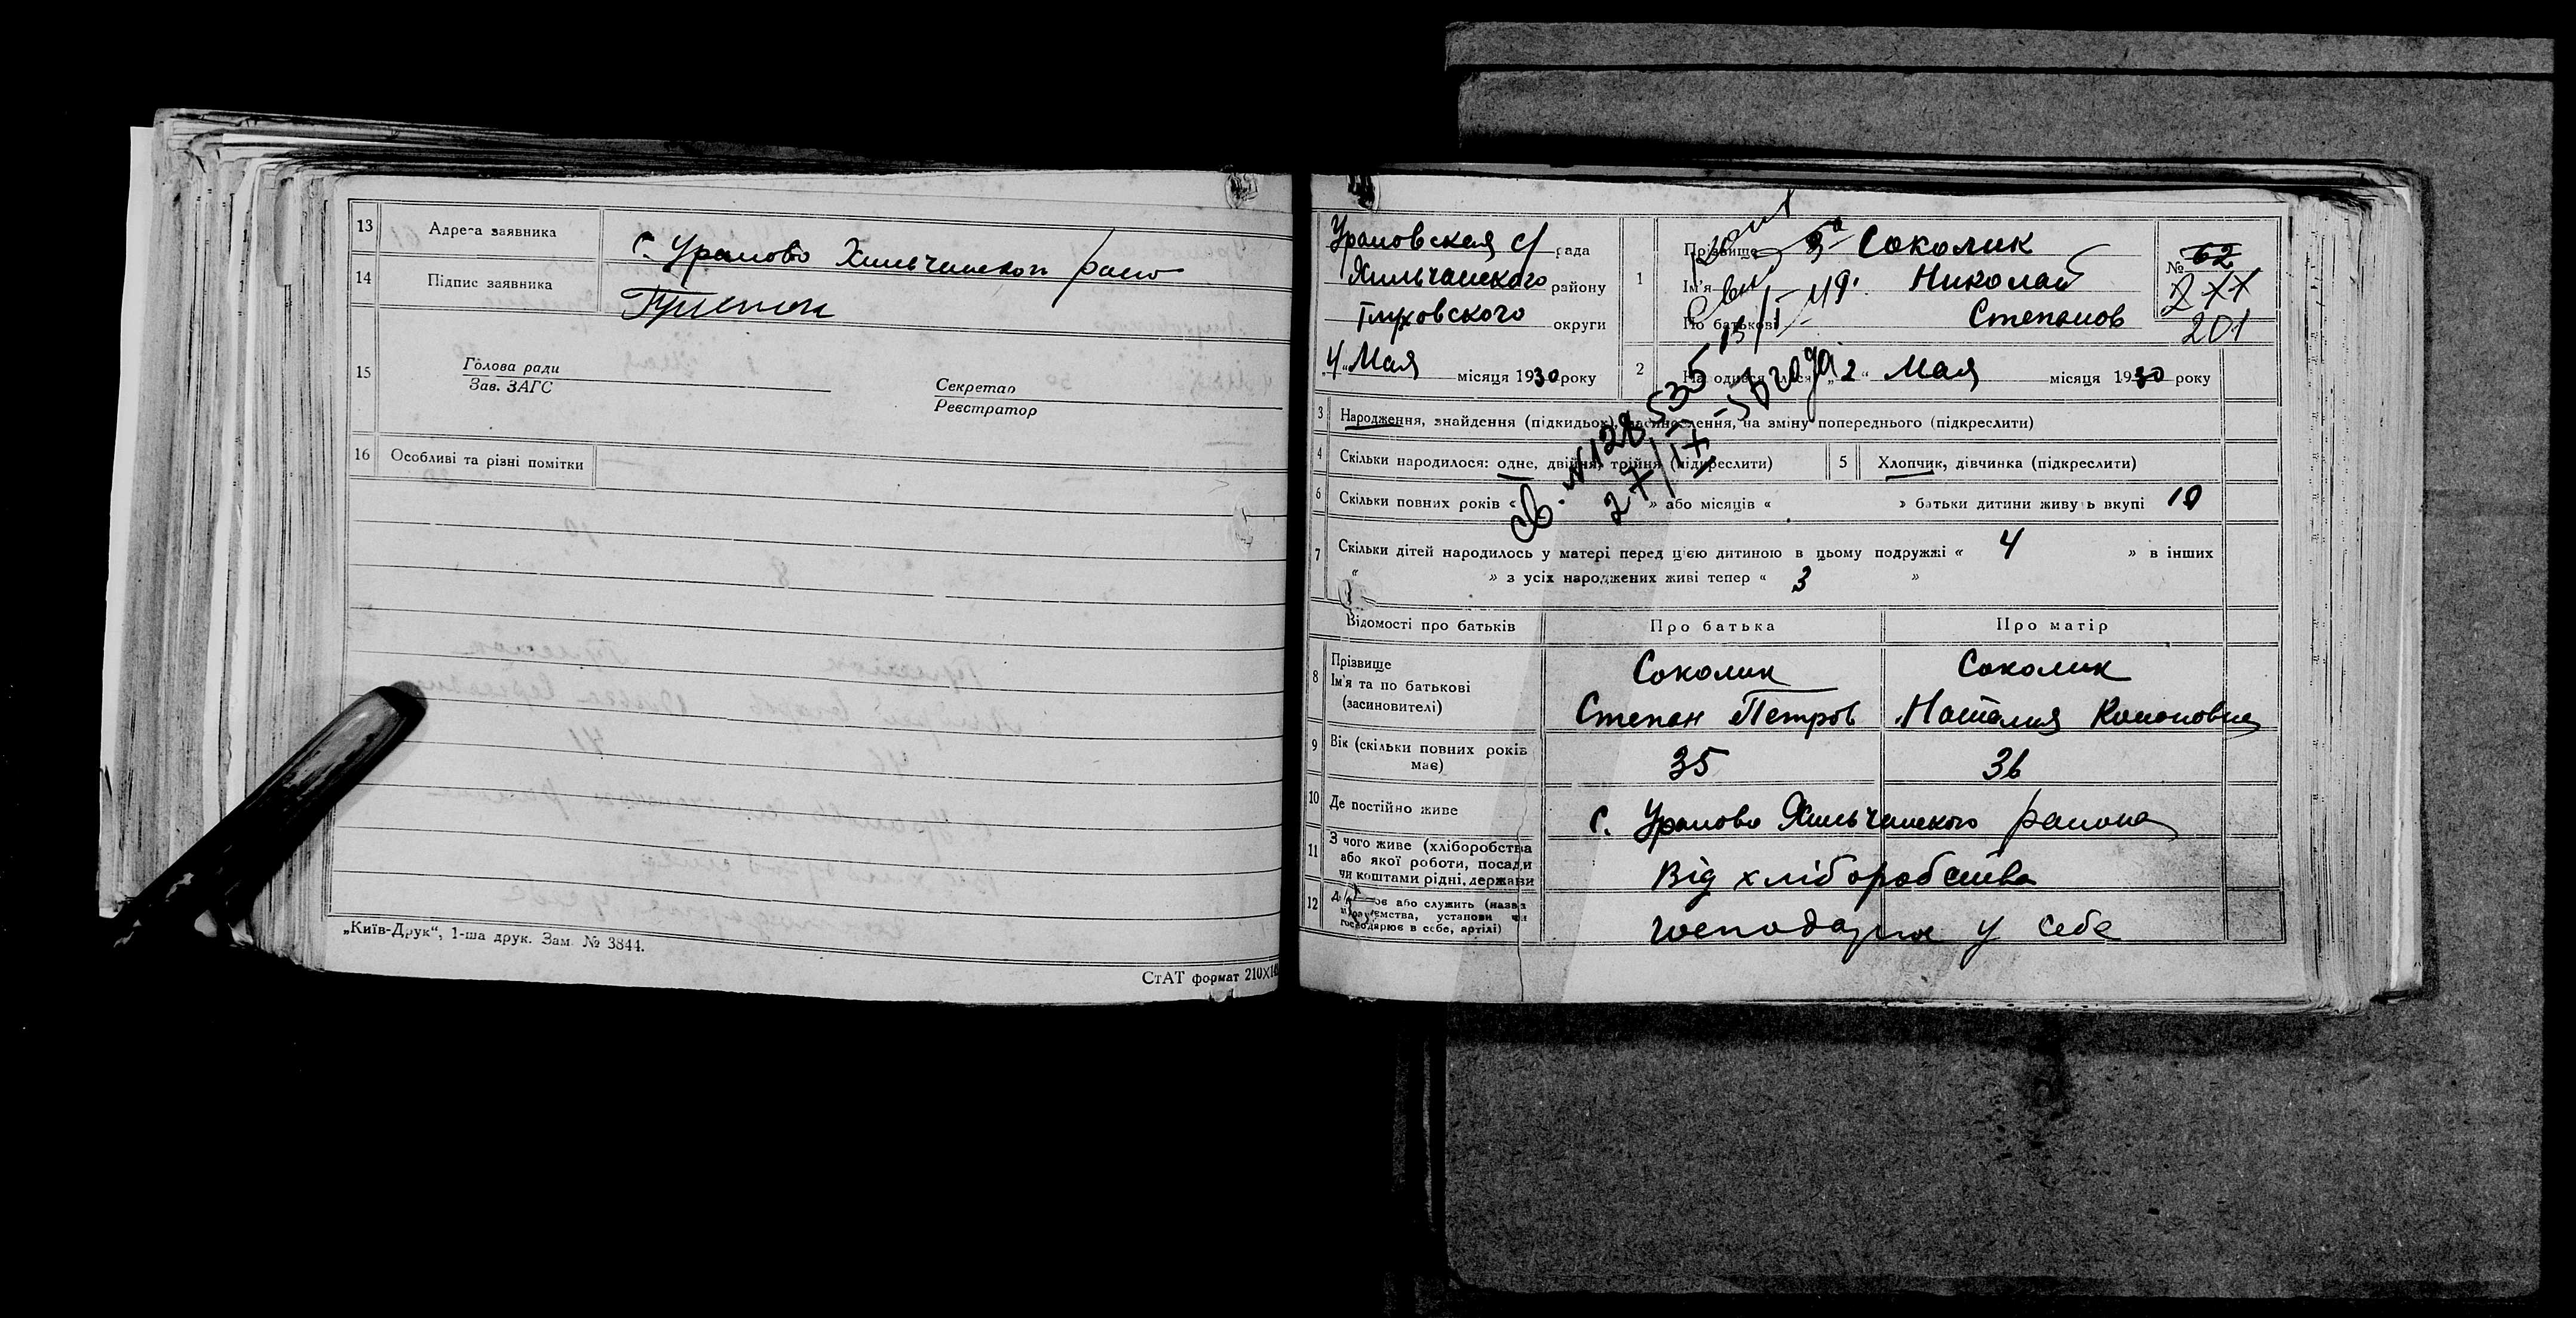 13 Адреса заявника с. Уралово Хильчанскои
14 Підпис заявника
15 Голова ради
Зав. ЗАГС
Секретар
Реєстратор
16 Особливі та різні помітки
„Київ-Друк“, 1-ша друк. Зам. № 3844.
СтАТ формат 210X1
Ураловская с/рада
Хильчанского району
Глуховского округи
„4“ Мая місяця 1930 року
1 Прізвище Соколик
Ім'я Николай
По батькові Степанов
№ 62
201
2 Народився „2“ Мая місяця 1930 року
3 Народження, знайдення (підкидьок), засиновлення, на зміну попереднього (підкреслити)
4 Скільки народилося: одне, двійня, трійня (підкреслити)
5 Хлопчик, дівчинка (підкреслити)
6 Скільки повних років « » або місяців « » батьки дитини живуть вкупі 10
7 Скільки дітей народилось у матері перед цією дитиною в цьому подружжі « 4 » в інших
« » з усіх народжених живі тепер « 3 »
Відомості про батьків Про батька Про матір
8 Прізвище Соколик Соколик
Ім'я та по батькові
(засиновителі) Степан Петров Наталия Кононовна
9 Вік (скільки повних років має) 35 36
10 Де постійно живе с. Уралово Хильчанского района
11 З чого живе (хліборобства
або якої роботи, посади
чи коштами рідні, держави Від хліборобства
12 або служить (назва
установи чи
господарює в себе, артілі) господарює у себе
св. N 128 535
27/IX-50 года